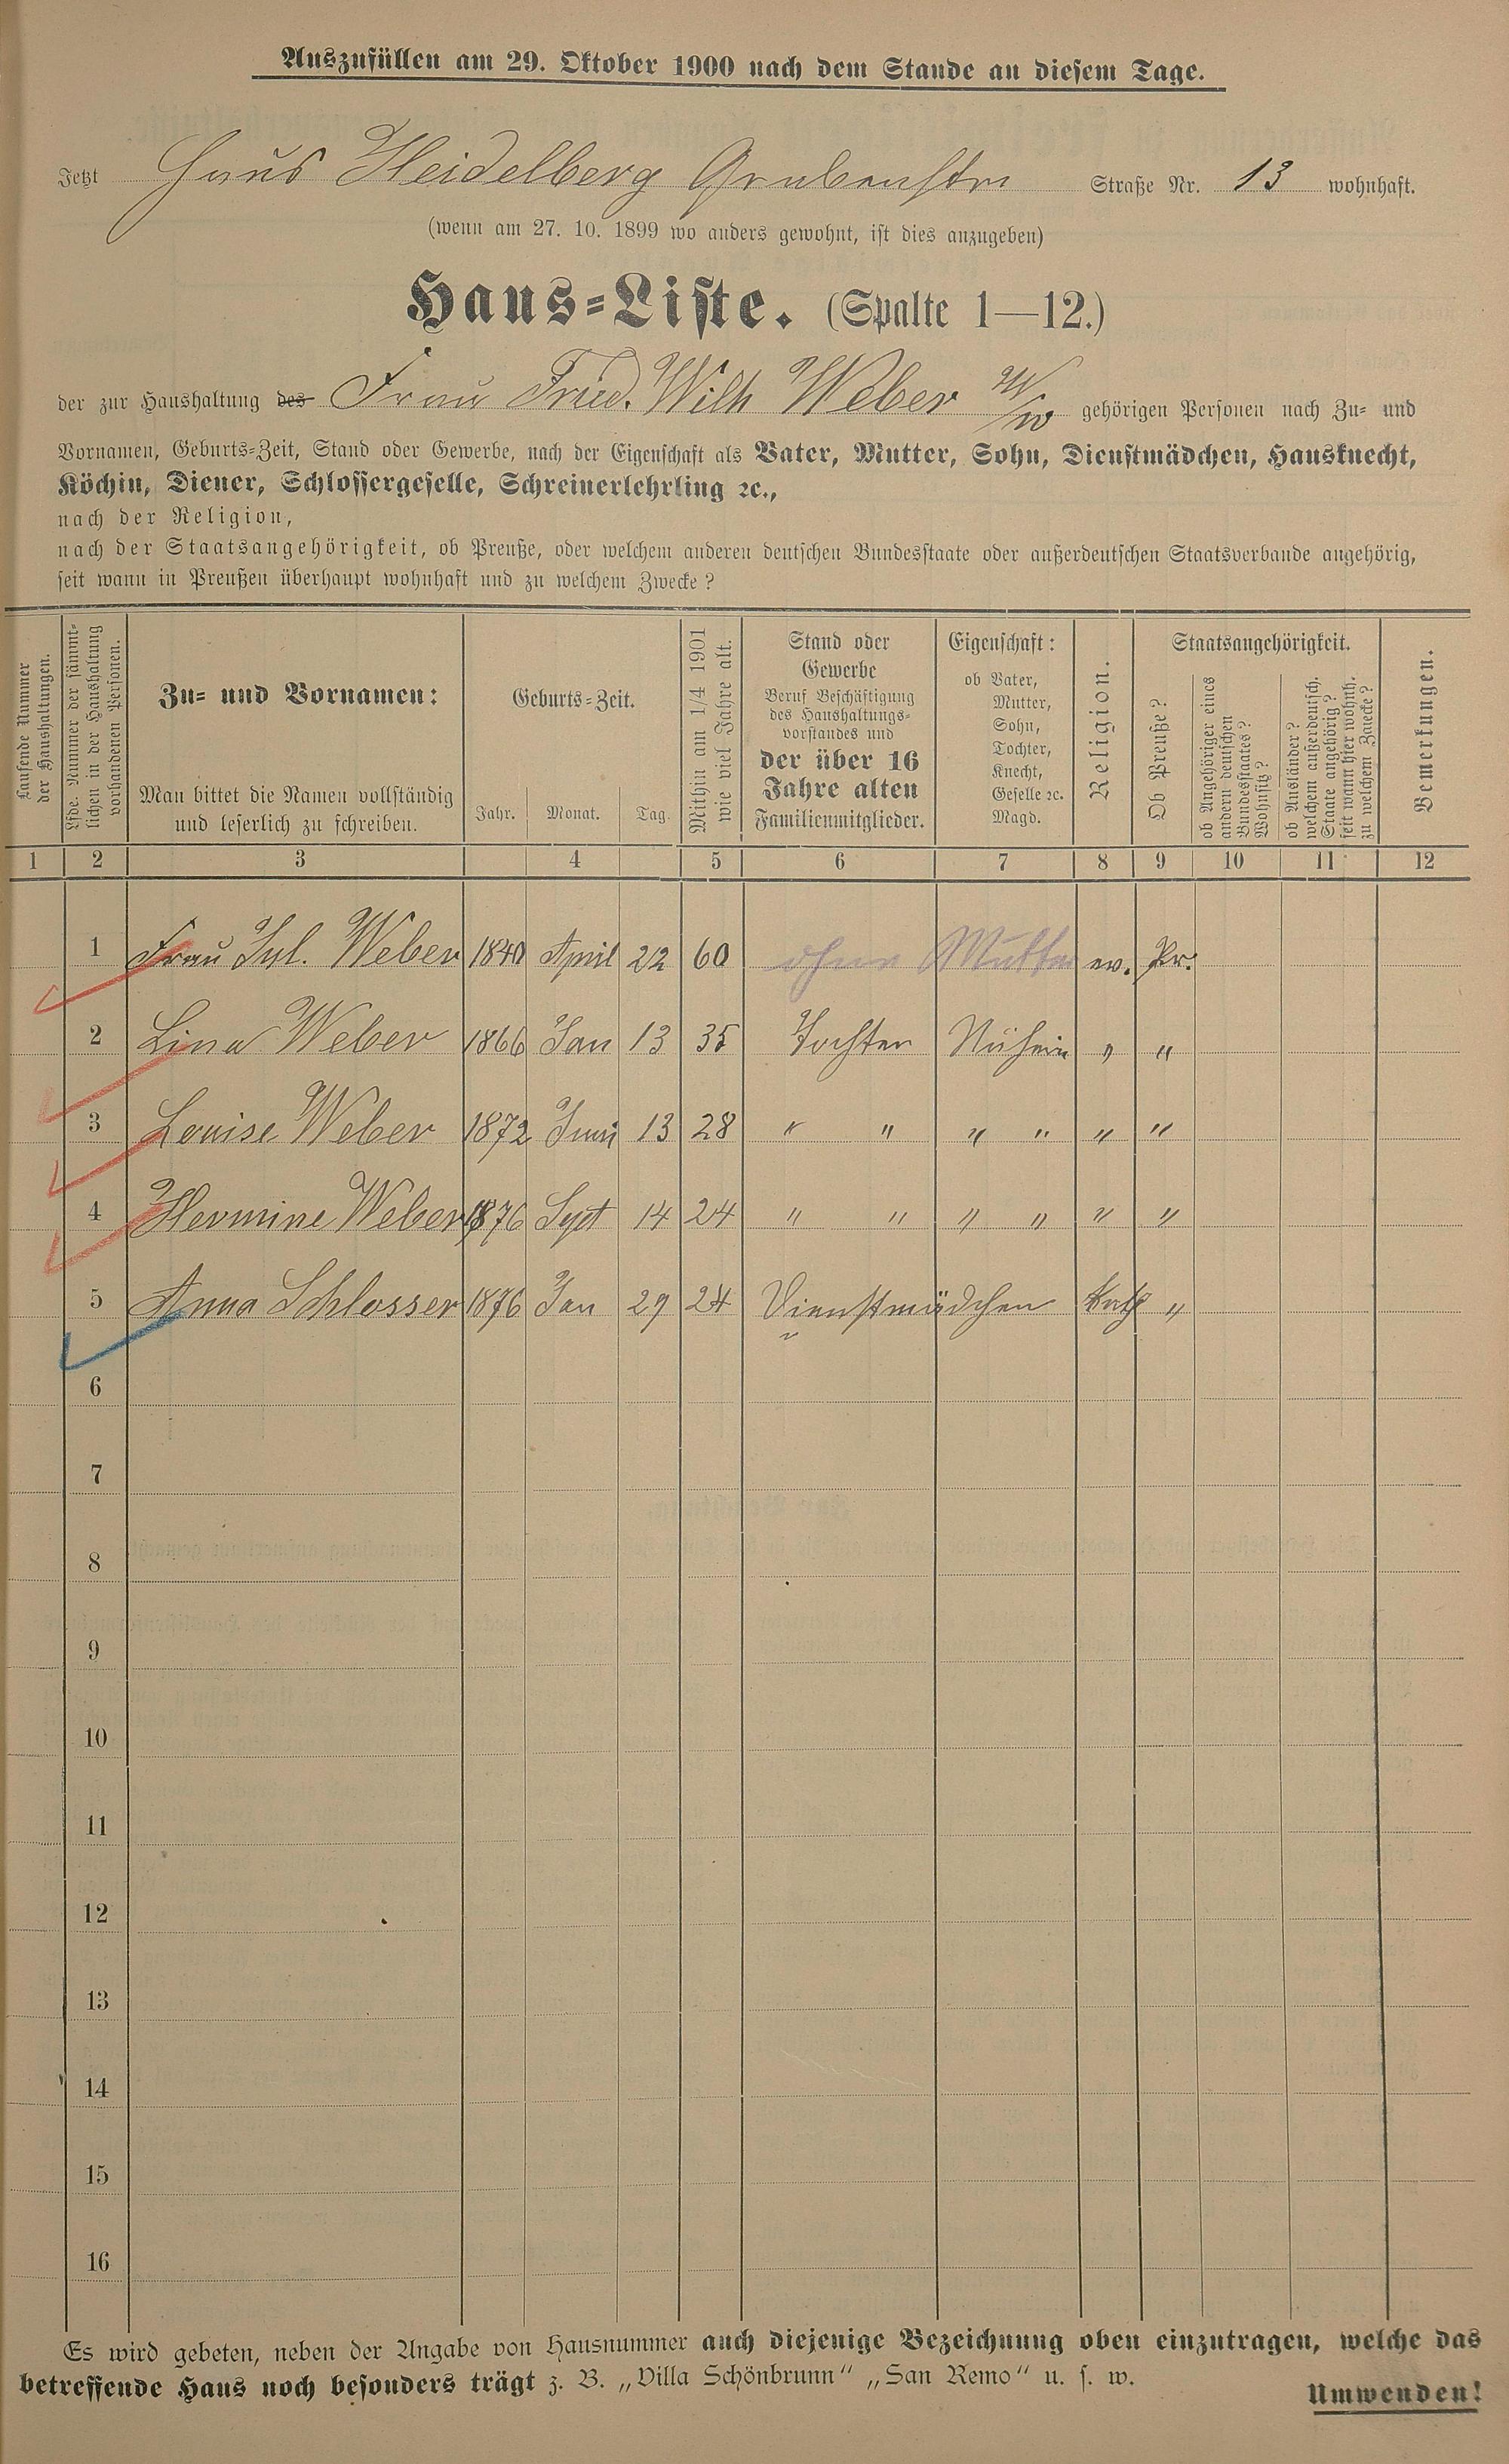 Auszufüllen am 29. Oktober 1900 nach dem Stande an diesem Tage.
Jetzt Haus Heidelberg Grabenstr Straße Nr. 13 wohnhaft.
(wenn am 27. 10. 1899 wo anders gewohnt, ist dies anzugeben)
Haus-Liste. (Spalte 1—12.)
der zur Haushaltung des Frau Fried. Wilh Weber Ww gehörigen Personen nach Zu- und
Vornamen, Geburts-Zeit, Stand oder Gewerbe, nach der Eigenschaft als Vater, Mutter, Sohn, Dienstmädchen, Hausknecht,
Köchin, Diener, Schlossergeselle, Schreinerlehrling ꝛc.,
nach der Religion,
nach der Staatsangehörigkeit, ob Preuße, oder welchem anderen deutschen Bundesstaate oder außerdeutschen Staatsverbande angehörig,
seit wann in Preußen überhaupt wohnhaft und zu welchem Zwecke?
Laufende Nummer
der Haushaltungen.
Lfde. Nummer der sämmt-
lichen in der Haushaltung
vorhandenen Personen.
Zu- und Vornamen:
Man bittet die Namen vollständig
und leserlich zu schreiben.
Geburts-Zeit.
Jahr. Monat. Tag.
Mithin am 1/4 1901
wie viel Jahre alt.
Stand oder
Gewerbe
Beruf Beschäftigung
des Haushaltungs-
vorstandes und
der über 16
Jahre alten
Familienmitglieder.
Eigenschaft:
ob Vater,
Mutter,
Sohn,
Tochter,
Knecht,
Geselle ꝛc.
Magd.
Religion.
Staatsangehörigkeit.
Ob Preuße?
ob Angehöriger eines
andern deutschen
Bundesstaates?
Wohnsitz?
ob Ausländer?
welchem außerdeutsch.
Staate angehörig?
seit wann hier wohnh.
zu welchem Zwecke?
Bemerkungen.
1 2 3 4 5 6 7 8 9 10 11 12
1 Frau Jul. Weber 1840 April 22 60 ohne Mutter ev. Pr.
2 Lina Weber 1866 Jan 13 35 Tochter " "
3 Louise Weber 1872 Juni 13 28 " " " " " "
4 Hermine Weber 1876 Sept 14 24 " " " " " "
5 Anna Schlosser 1876 Jan 29 24 Dienstmädchen kath "
6
7
8
9
10
11
12
13
14
15
16
Es wird gebeten, neben der Angabe von Hausnummer auch diejenige Bezeichnung oben einzutragen, welche das
betreffende Haus noch besonders trägt z. B. „Villa Schönbrunn" „San Remo" u. s. w.
Umwenden!